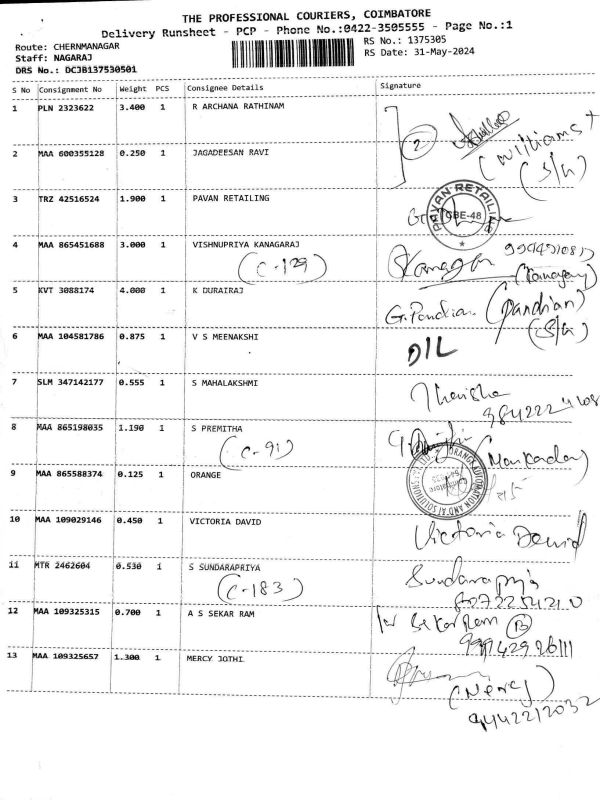 THE PROFESSIONAL COURIERS, COIMBATORE
Delivery Runsheet - PCP - Phone No.:0422-3505555 - Page No.:1
Route: CHERNMANAGAR
Staff: NAGARAJ
DRS No.: DCJB137530501
RS No.: 1375305
RS Date: 31-May-2024
S No Consignment No Weight PCS Consignee Details Signature
1 PLN 2323622 3.400 1 R ARCHANA RATHINAM
2
(Williams)
(S/G)
2 MAA 600355128 0.250 1 JAGADEESAN RAVI
3 TRZ 42516524 1.900 1 PAVAN RETAILING
PAVAN RETAILING
CBE-48
4 MAA 865451688 3.000 1 VISHNUPRIYA KANAGARAJ
(C-129)
5 KVT 3088174 4.000 1 K DURAIRAJ
G. Pandian (Pandian)
(S/G)
6 MAA 104581786 0.875 1 V S MEENAKSHI
DIL
7 SLM 347142177 0.555 1 S MAHALAKSHMI
8 MAA 865198035 1.190 1 S PREMITHA
(C-91)
9 MAA 865588374 0.125 1 ORANGE
10 MAA 109029146 0.450 1 VICTORIA DAVID
Victoria David
11 MTR 2462604 0.530 1 S SUNDARAPRIYA
(C-183)
Sundarapriya
8072254210
12 MAA 109325315 0.700 1 A S SEKAR RAM
for Sekar Ram
13 MAA 109325657 1.300 1 MERCY JOTHI
9442212032